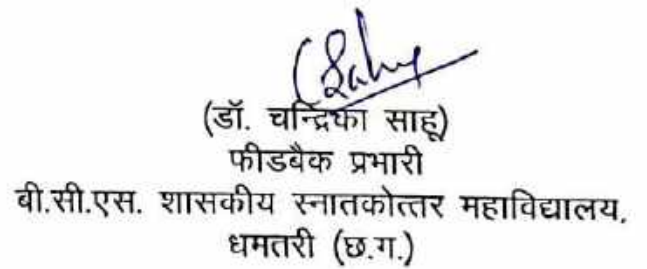 CSahu
(डॉ. चन्द्रिका साहू)
फीडबैक प्रभारी
बी.सी.एस. शासकीय स्नातकोत्तर महाविद्यालय,
धमतरी (छ.ग.)